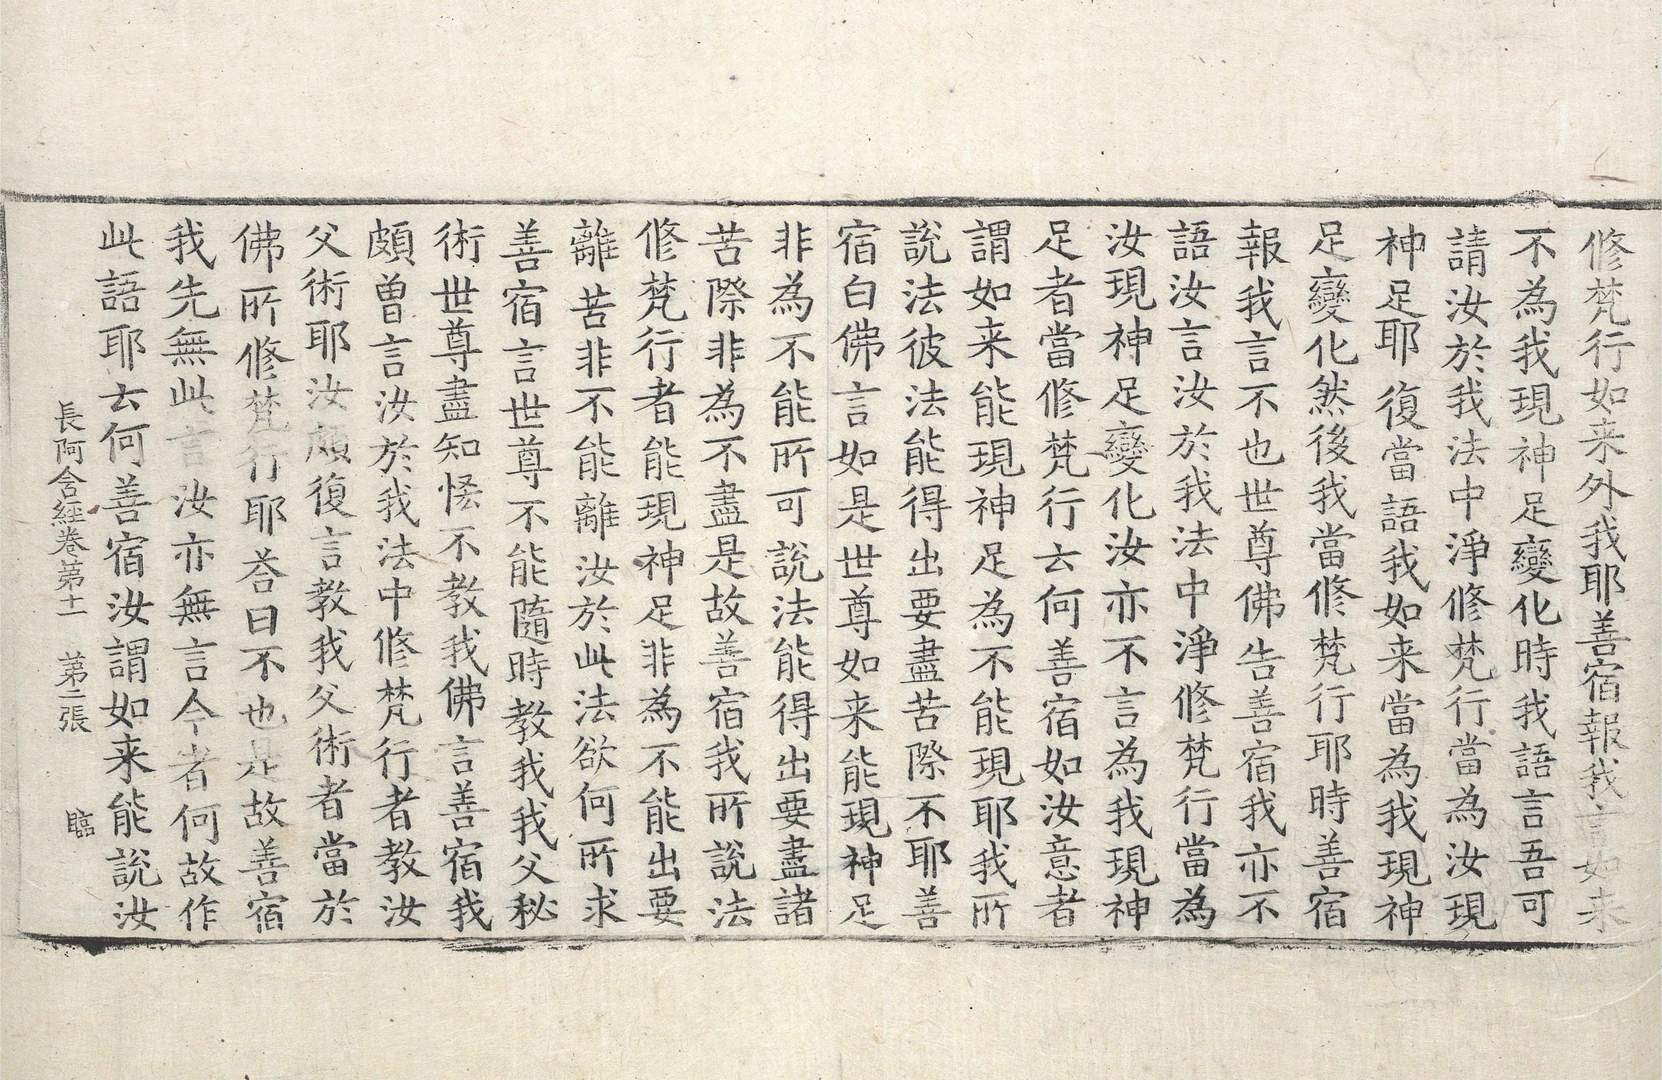 修梵行如来外我耶善宿報我言如来
不為我現神足變化時我語言吾可
請汝於我法中淨修梵行當為汝現
神足耶復當語我如来當為我現神
足變化然後我當修梵行耶時善宿
報我言不也世尊佛告善宿我亦不
語汝言汝於我法中淨修梵行當為
汝現神足變化汝亦不言為我現神
足者當修梵行云何善宿如汝意者
謂如来能現神足為不能現耶我所
說法彼法能得出要盡苦際不耶善
宿白佛言如是世尊如来能現神足
非為不能所可說法能得出要盡諸
苦際非為不盡是故善宿我所說法
修梵行者能現神足非為不能出要
離苦非不能離汝於此法欲何所求
善宿言世尊不能隨時教我我父秘
術世尊盡知悋不教我佛言善宿我
頗曽言汝於我法中修梵行者教汝
父術耶汝頗復言教我父術者當於
佛所修梵行耶荅曰不也是故善宿
我先無此言汝亦無言今者何故作
此語耶云何善宿汝謂如来能說汝
長阿含經卷第十一 第二張 臨